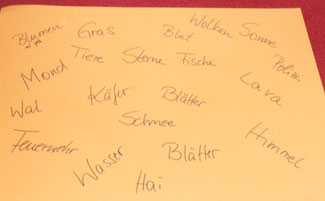 Blumen Gras Blut Wolken Sonne
Mond Tiere Sterne Fische Polizei
Wal Käfer Blätter Lava
Schnee
Feuerwehr Wasser Blätter Himmel
Hai